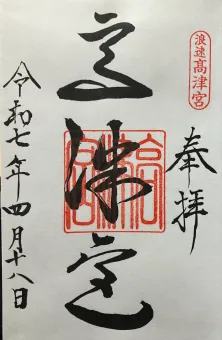 浪速
高津宮
奉拝
高津宮
令和七年四月十八日